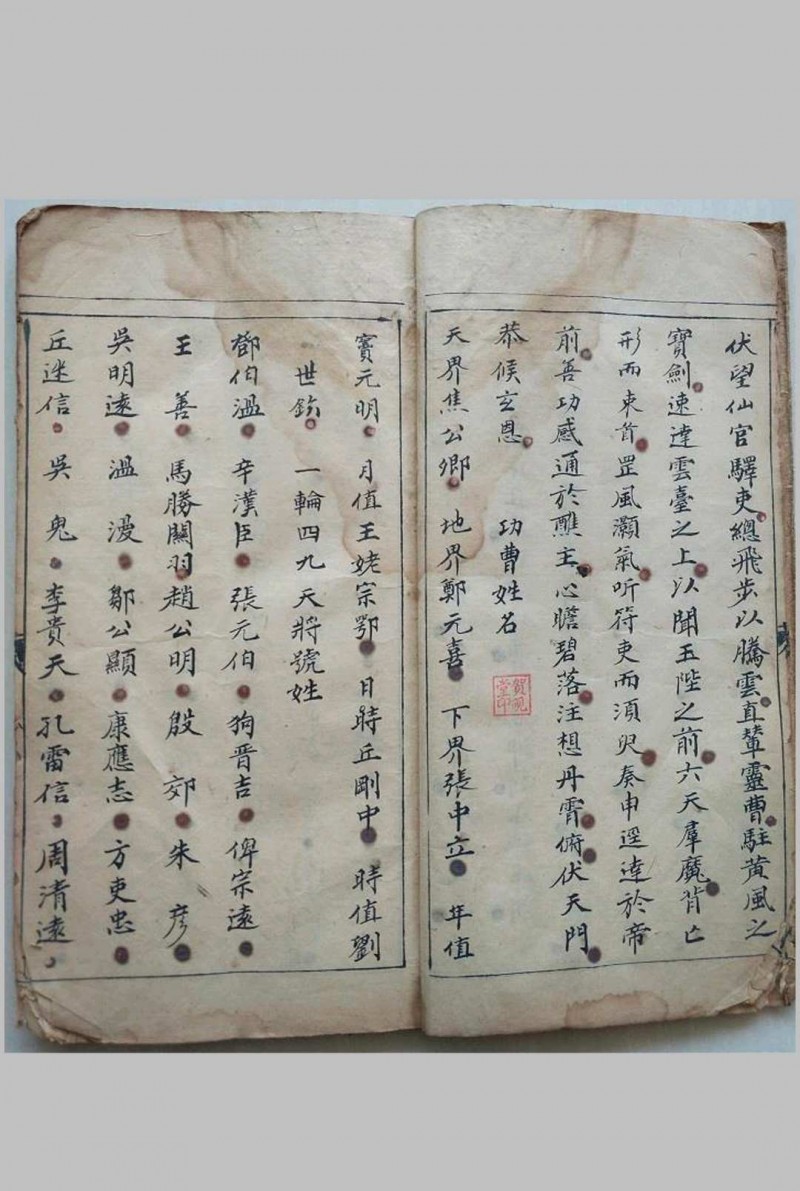 伏望仙官驛吏總飛步以騰雲直輦靈曹駐黃風之
寶劍速達雲臺之上以聞玉陛之前六天羣魔背亡
形而束首罡風灝氣听符吏而須臾奏申逕達於帝
前善功感通於醮主心瞻碧落注想丹霄俯伏天門
恭候玄恩 功曹姓名
天界焦公卿 地界鄭元喜 下界張中立 年值
竇元明 月值王姥宗鄂 日時丘剛中 時值劉
世欽 一輪四九天將號姓
鄧伯溫 辛漢臣 張元伯 狗晉吉 俾宗遠
王善 馬勝關羽趙公明 殷郊 朱彥
吳明遠 溫漫 鄒公顯 康應志 方吏忠
丘迷信 吳鬼 李貴天 孔雷信 周清遠